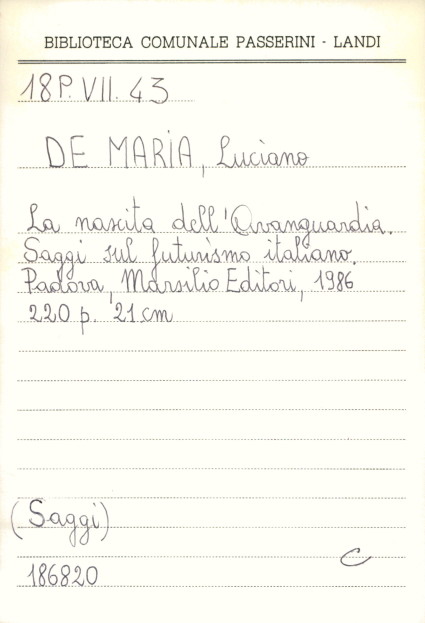 BIBLIOTECA COMUNALE PASSERINI - LANDI
18P. VII. 43
DE MARIA, Luciano
La nascita dell'Avanguardia.
Saggi sul futurismo italiano.
Padova, Marsilio Editori, 1986
220 p. 21 cm
(Saggi)
C
186820